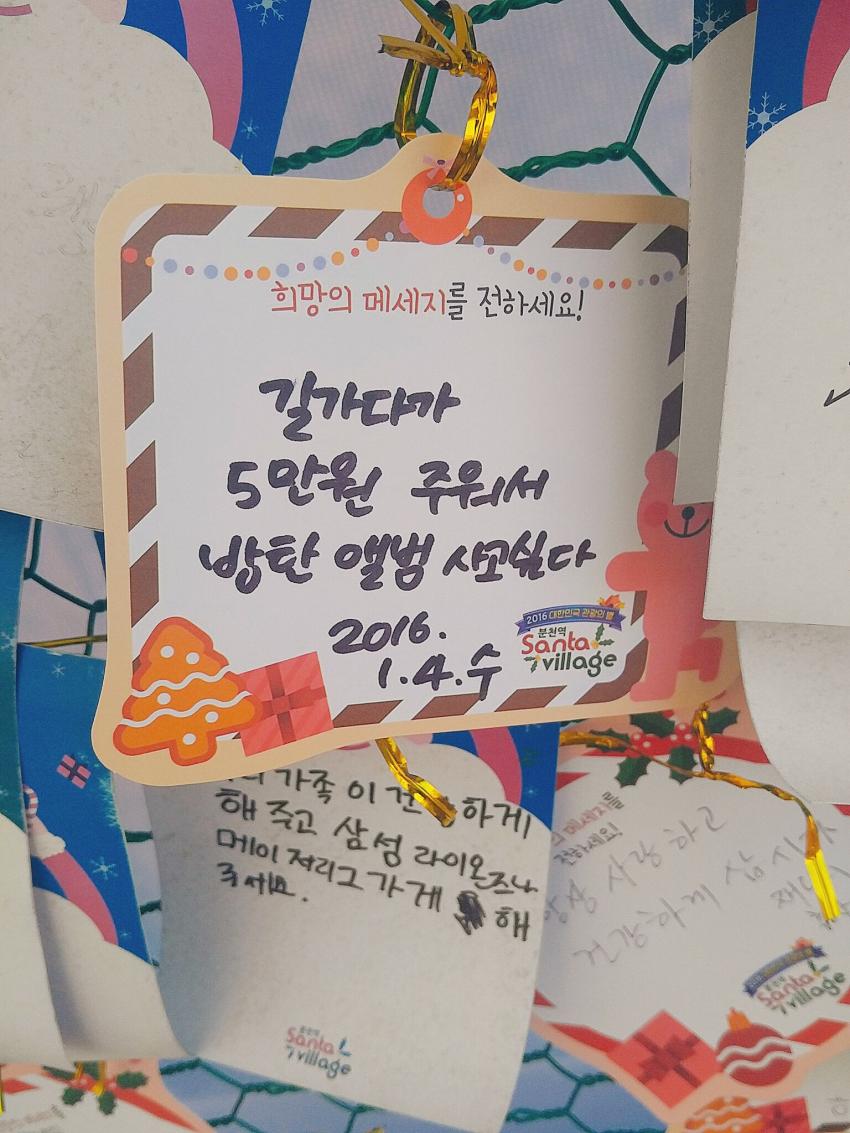 희망의 메세지를 전하세요!
길가다가
5만원 주워서
방탄 앨범 사고싶다
2016.
1.4.수
2016 대한민국 관광의 별
분천역
Santa
village
가족 이 하게
해 주고 삼성 라이온즈나
메이저리그가게 해
주세요.
분천역
Santa
village
메세지를
전하세요!
항상 사랑하고
건강하게 삽시다
Santa
village